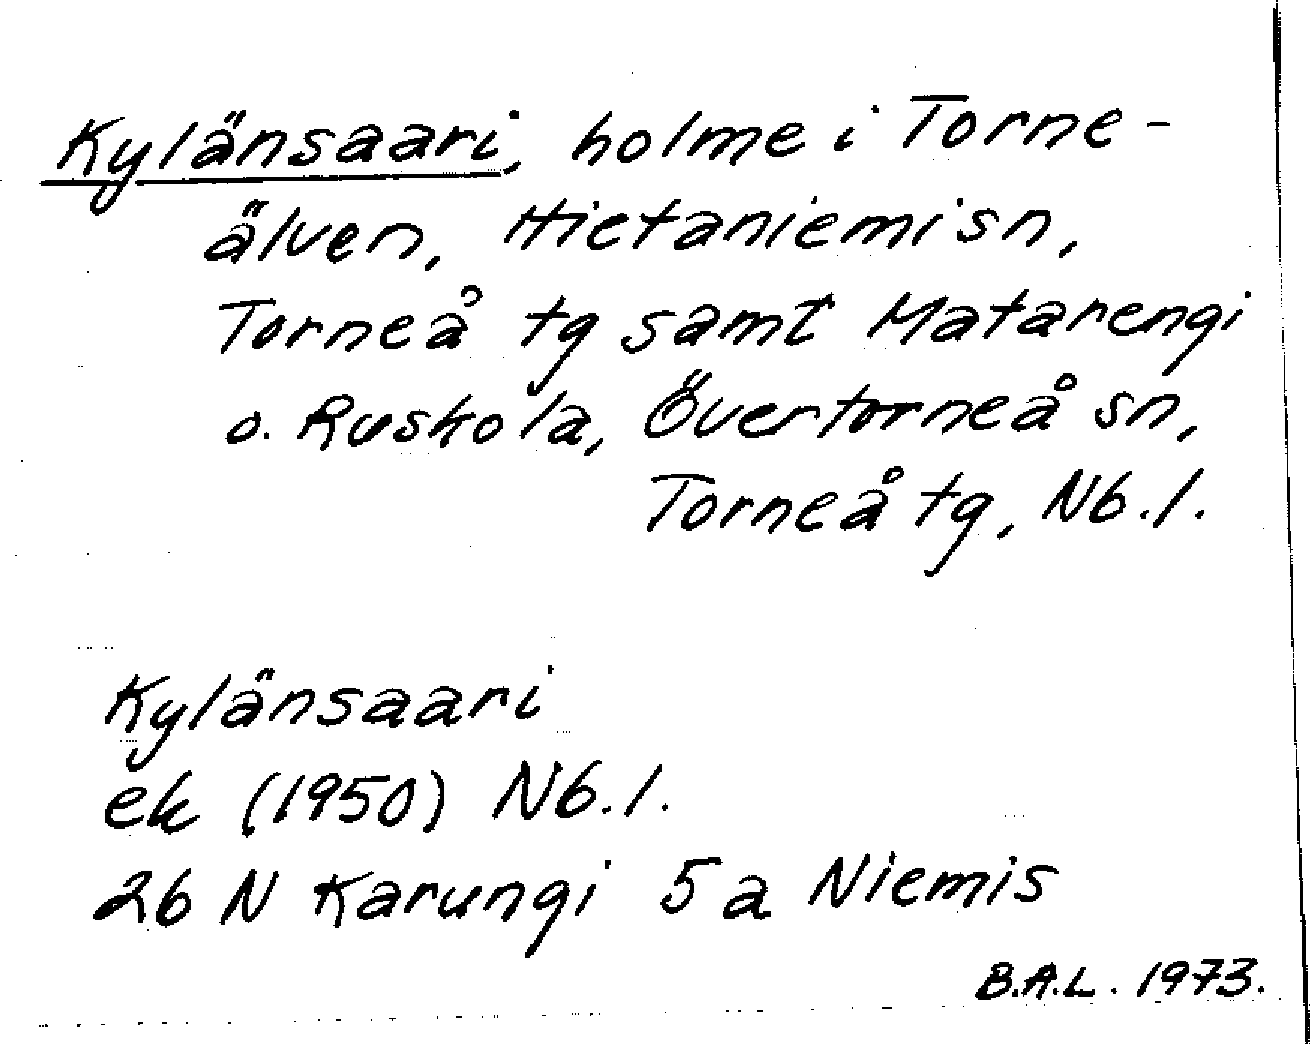 Kylänsaari, holme i Torne-
älven, Hietaniemi sn,
Torneå tg samt Matarengi
o. Ruskola, Övertorneå sn,
Torneå tg, Nb.l.
Kylänsaari
ek (1950) Nb.l.
26 N Karungi 5 a Niemis
B.A.L. 1973.